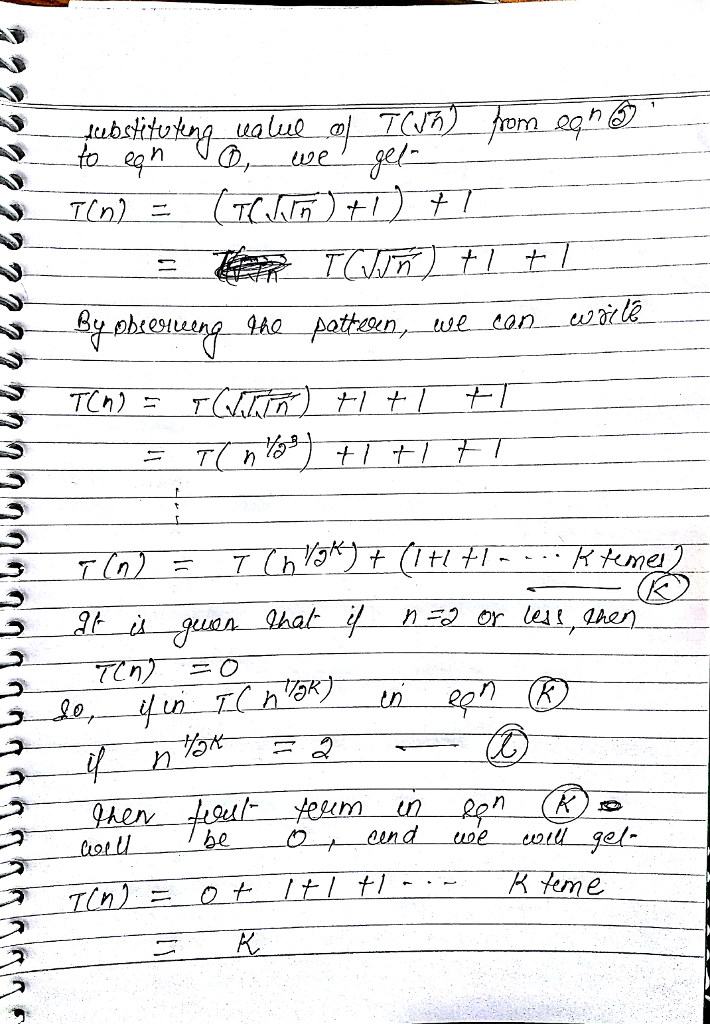 substituting value of T(√n) from eqn ②
to eqn ①, we get
T(n) = (T(√√n) + 1) + 1
= T(√√n) + 1 + 1
By observing the pattern, we can write
T(n) = T(√√√n) + 1 + 1 + 1
= T(n^1/2^3) + 1 + 1 + 1
T(n) = T(n^1/2^K) + (1+1+1 - ... K times)
— Ⓚ
It is given that if n=2 or less, then
T(n) = 0
So, if in T(n^1/2^K) in eqn Ⓚ
if n^1/2^K = 2 —
then first term in eqn Ⓚ
will be 0, and we will get
T(n) = 0 + 1+1+1 - .. - K time
= K